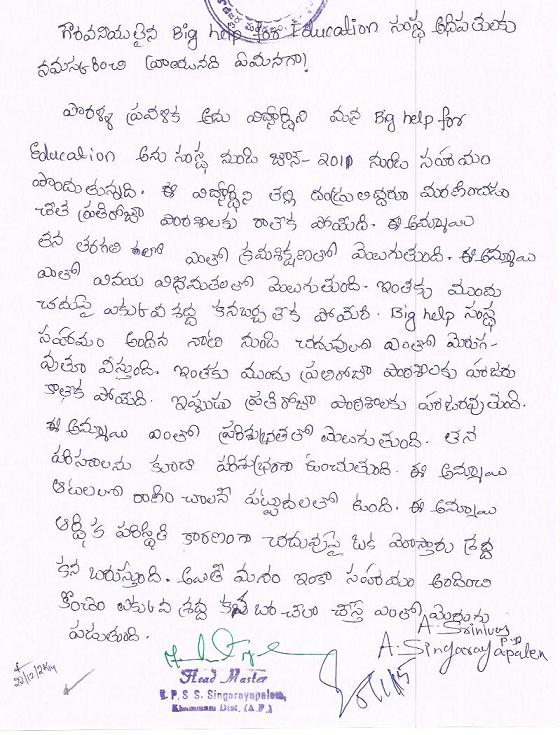 గౌరవనియులైన Big help for Education సంస్థ అధిపతులకు
నమస్కరించి వ్రాయునది ఏమనగా!
ప్రవళిక అను విద్యార్థిని మన Big help for
Education అను సంస్థ నుండి జూన్ - 2010 నుండి సహాయం
పొందుతున్నది. ఈ విద్యార్థిని తల్లి దండ్రులిద్దరూ మరణించడం
చేత ప్రతిరోజూ పాఠశాలకు రాలేక పోయేది. ఈ అమ్మాయి
తన తరగతిలో ఎంతో క్రమశిక్షణతో మెలుగుతుంది. ఈ అమ్మాయి
ఎంతో వినయ విధేయతలతో మెలుగుతుంది. ఇంతకు ముందు
చదువుపై ఎక్కువ శ్రద్ధ కనబర్చలేక పోయేది. Big help సంస్థ
సహాయం అందిన నాటి నుండి చదువులో ఎంతో మెరుగ-
వుతూ వస్తుంది. ఇంతకు ముందు ప్రతిరోజూ పాఠశాలకు హాజరు
కాలేక పోయేది. ఇప్పుడు ప్రతిరోజూ పాఠశాలకు హాజరవుతుంది.
ఈ అమ్మాయి ఎంతో పరిశుభ్రతతో మెలుగుతుంది. తన
పరిసరాలను కూడా పరిశుభ్రంగా ఉంచుతుంది. ఈ అమ్మాయి
ఆటలలో రాణించాలనే పట్టుదలతో ఉంది. ఈ అమ్మాయి
ఆర్థిక పరిస్థితి కారణంగా చదువుపై ఒక మోస్తారు శ్రద్ధ
కనబరుస్తుంది. అయితే మనం ఇంకా సహాయం అందించి
కొంచెం ఎక్కువ శ్రద్ధ కనబరిచేలా చేస్తే ఎంతో మెరుగు
పడుతుంది.
A. Srinivas
A. Singarayapalem
Head Master
P. S. S. Singarayapalem,
Khammam Dist. (A.P.)